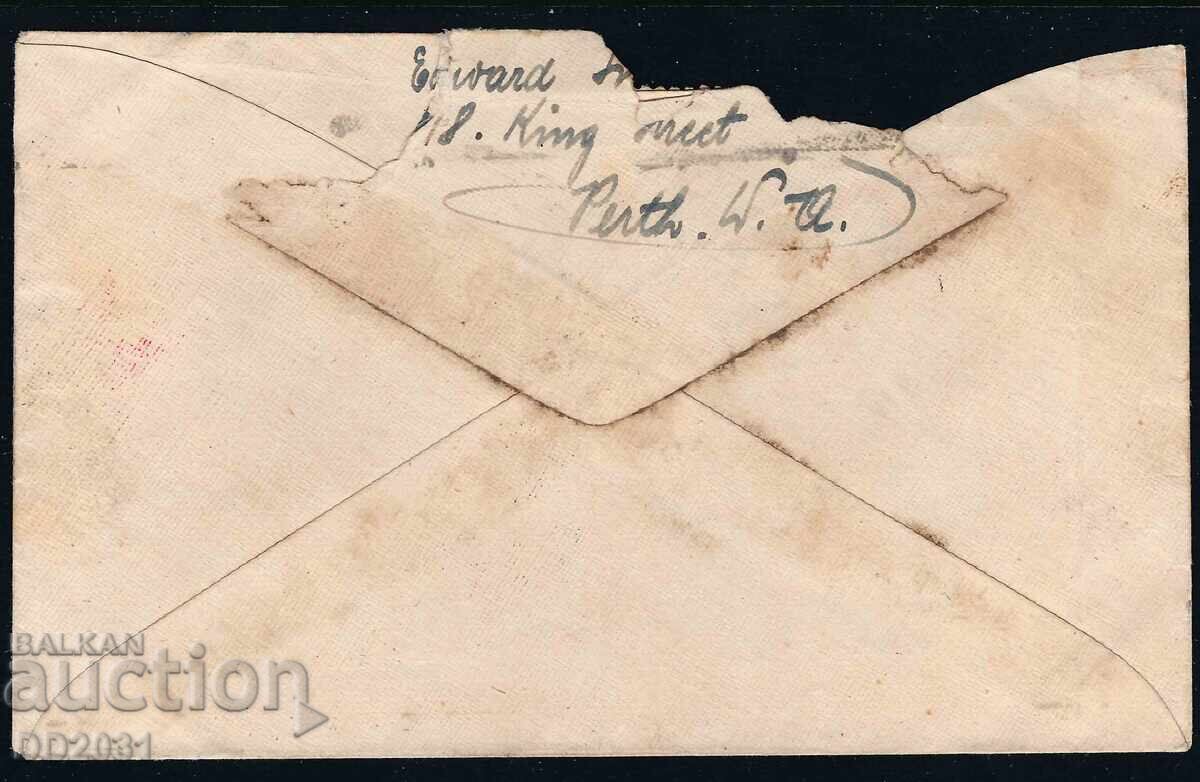 Edward
118. King Street
Perth. W. A.
BALKAN
auction
DD2031